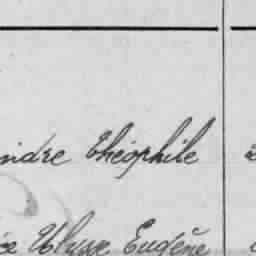 andre Théophile
Ulysse Eugène